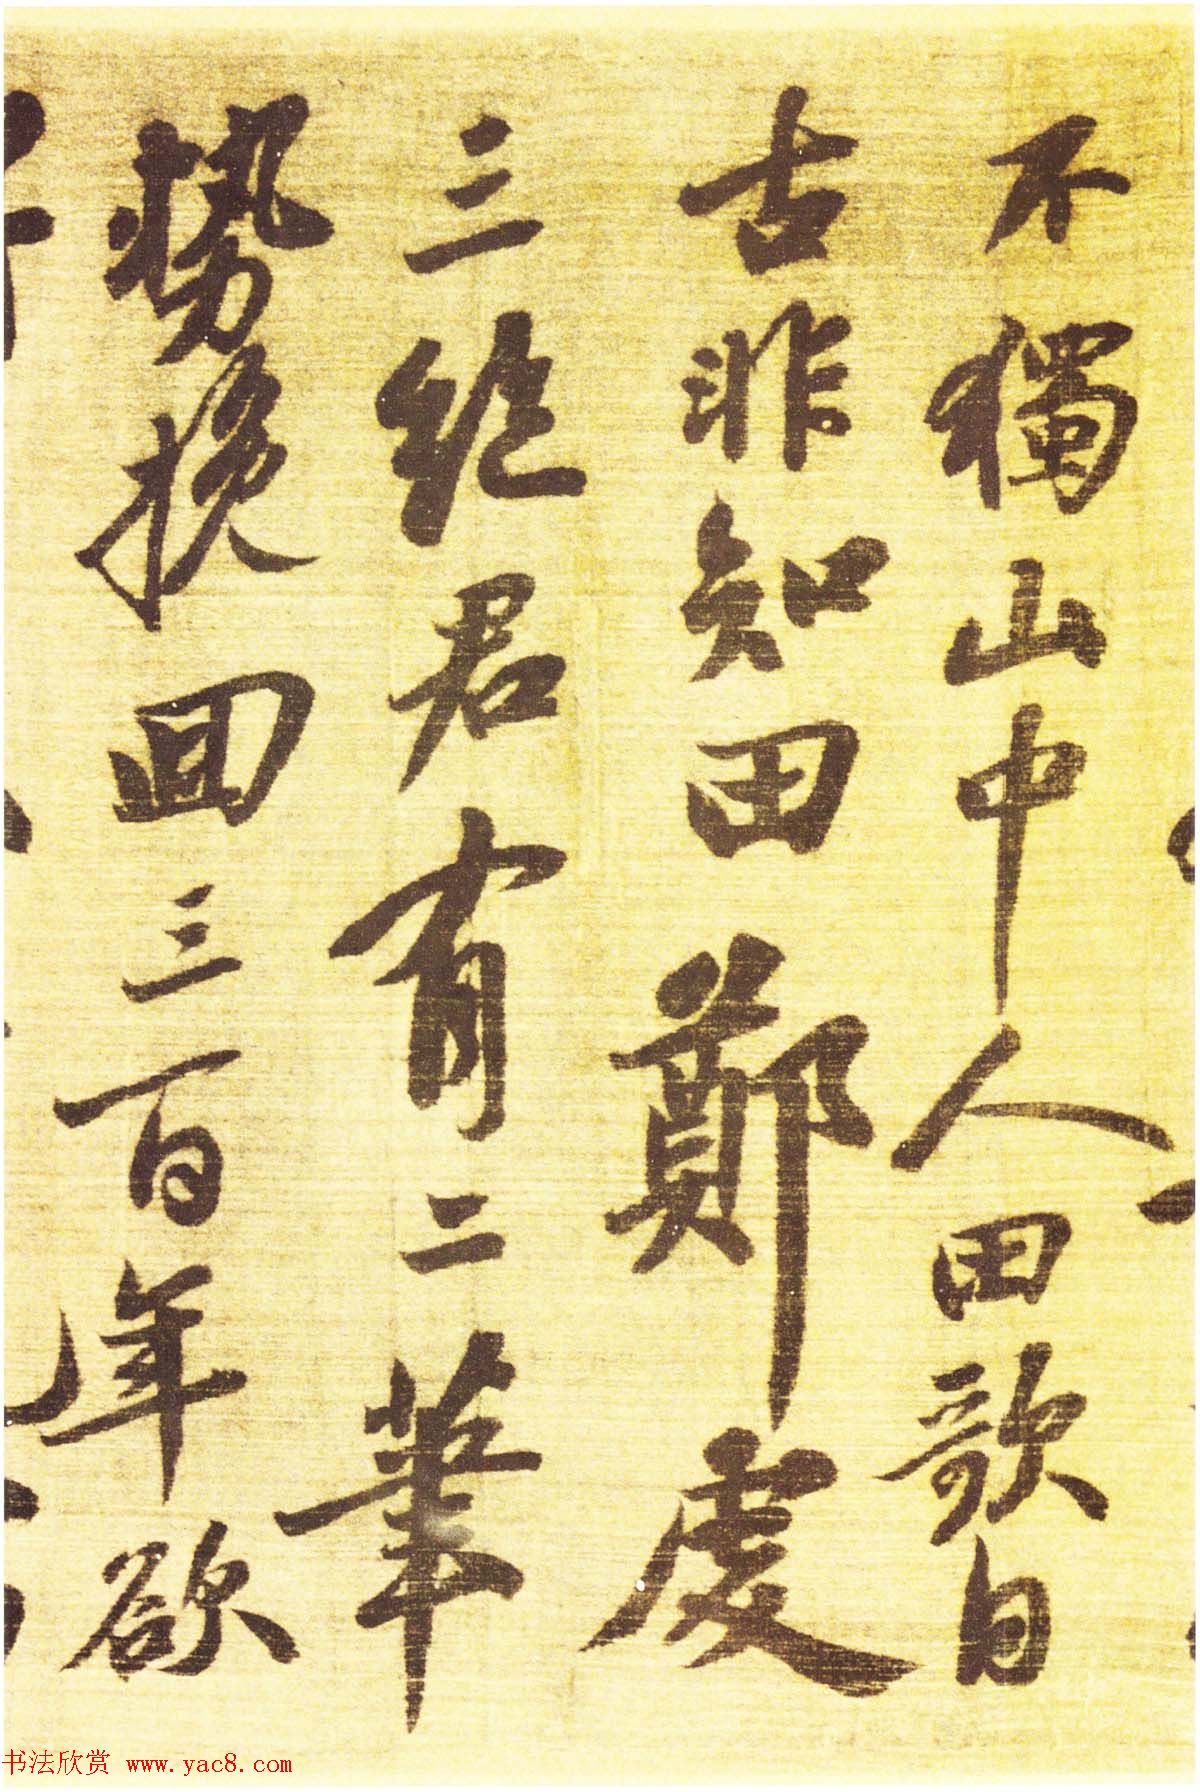 不獨山中人田歌日
古非知田鄭虔
三絶君有二筆
勢挽回三百年欲
书法欣赏 www.yac8.com